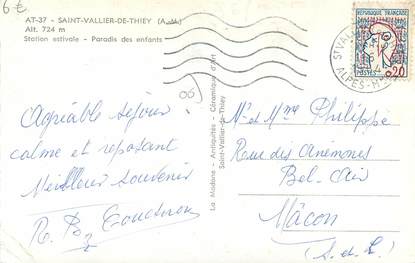 6 €
AT-37 - SAINT-VALLIER-DE-THIEY (A.-M.)
Alt. 724 m
Station estivale - Paradis des enfants
REPUBLIQUE FRANÇAISE
POSTES
0,20
ST VALL
ALPES-M
(06)
Agréable séjour
calme et reposant
Meilleur souvenir
R.
La Madone - Antiquités - Céramique d'Art
Saint-Vallier-de-Thiey
Mr et Mme Philippe
Rue des Anémones
Bel-Air
Mâcon
(S. et L.)